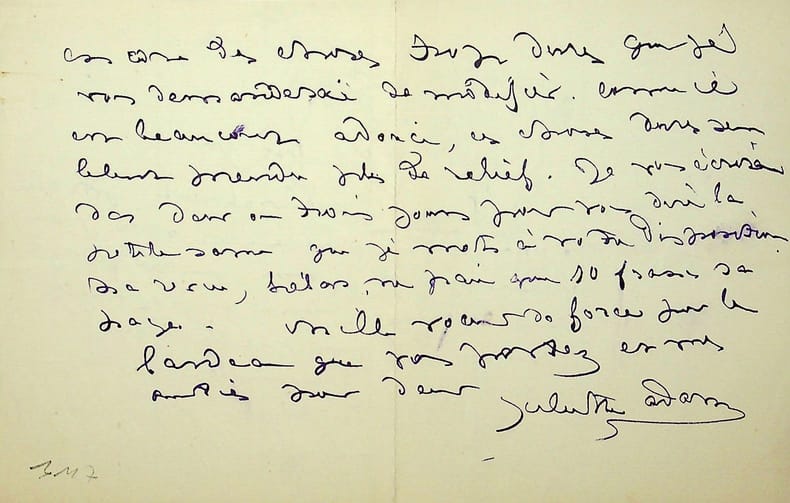 encore des choses trop dures que je
vous demanderai de modifier. comme il
est beaucoup adouci, ces choses dures sem
blent prendre plus de relief. Je vous écrirai
dans deux ou trois jours pour vous dire la
petite somme que je mets à votre disposition.
La revue, hélas, ne paie que 10 francs sa
page. Mille vœux de force pour le
fardeau que vous portez et mes
amitiés pour deux
Juliette Adam